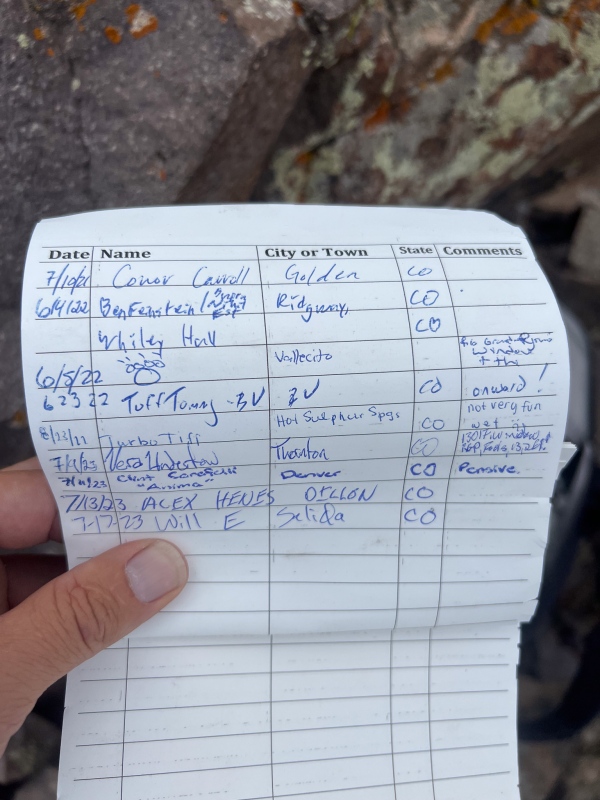 Date Name City or Town State Comments
7/10/21 Conor Carroll Golden CO
6/4/22 Ben Feinstein / Ridgway, CO
Whiley Hall CO
6/8/22 Vallecito Window + this
6 23 22 Tuff Tammy - BV BV CO onward!
8/23/22 Turbo Tiff Hot Sulphur Spgs CO not very fun wet
7/11/23 Vera Thornton CO
7/11/23 Clint "Anima" Denver CO Pensive.
7/13/23 ALEX HENES DILLON CO
7-17-23 Will E Salida CO